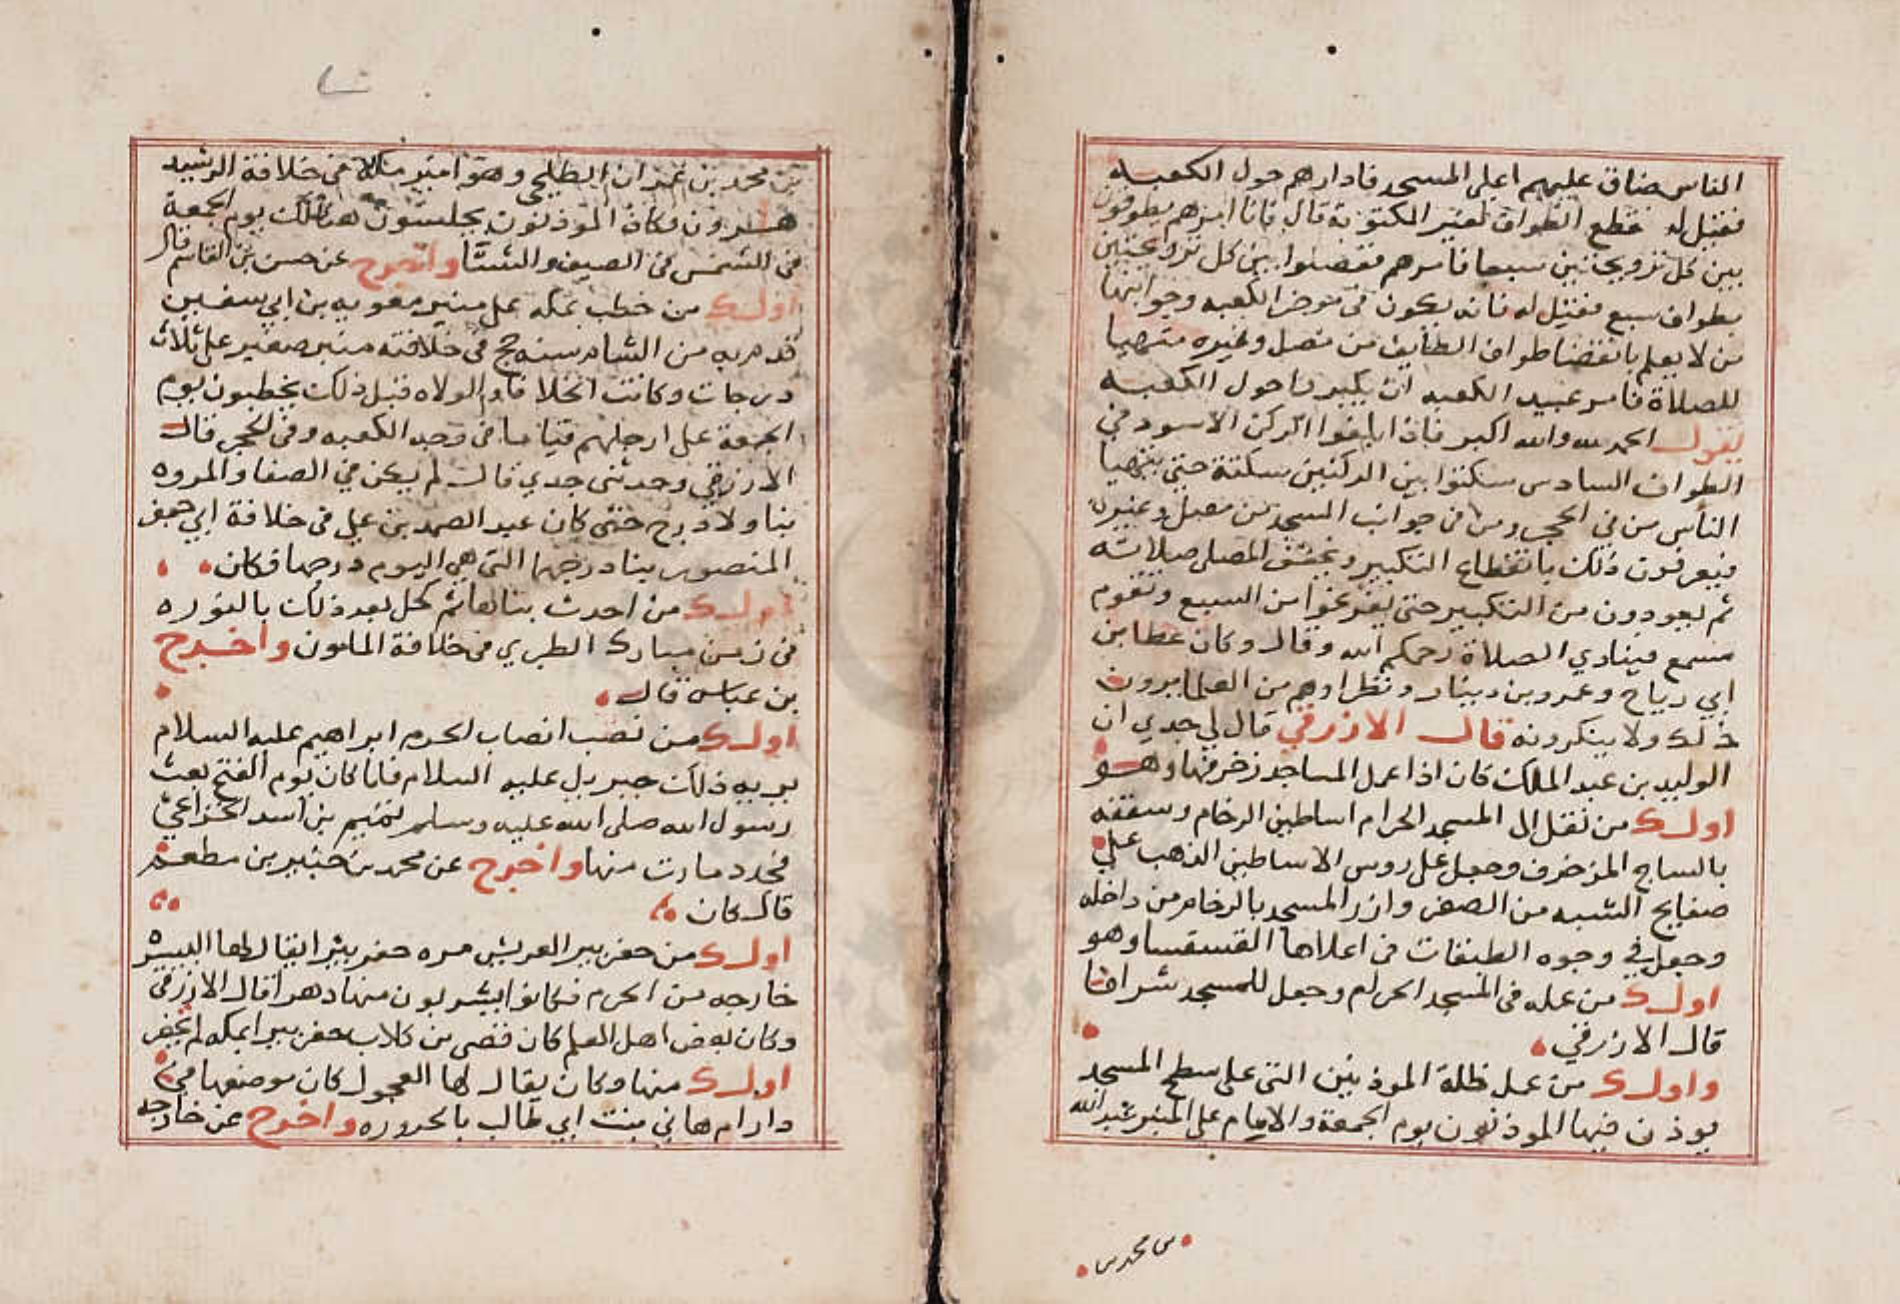 الناس ضاق عليهم اعلى المسجد فادارهم حول الكعبه
فقيل له تقطع الطواف لغير المكتوبة قال فانا امرهم يطوفون
بين كل ترويحتين سبعا فامرهم ففصلوا بين كل ترويحتين
بطواف سبع فقيل له فانه يكون في موخر الكعبه وجوانبها
من لا يعلم بانقضا طواف الطايف من مصل وغيره متهيا
للصلاة فامر عبيد الكعبه ان يكبروا حول الكعبه
يقولــ الحمد لله والله اكبر فاذا بلغوا الركن الاسود في
الطواف السادس سكتوا بين الركنين سكتة حتى يتهيا
الناس من في الحجر ومن في جوانب المسجد من مصل وغيره
فيعرفون ذلك بانقطاع التكبير ويخفف المصلي صلاته
ثم يعودون من التكبير حتى يفرغوا من السبع ويقوم
مسمع فينادي الصلاة رحمكم الله وقال وكان عطا بن
ابي رباح وعمرو بن دينار ونظراوهم من العلما يرون
ذلك ولا ينكرونه قال الازرقي قال لي جدي ان
الوليد بن عبد الملك كان اذا عمل المساجد زخرفها وهو
اول من نقل الى المسجد الحرام اساطين الرخام وسقفه
بالساج المزخرف وجعل على روس الاساطين الذهب على
صفايح الشبه من الصفر وازر المسجد بالرخام من داخله
وجعل في وجوه الطيقات في اعلاها الفسيفسا وهو
اول من عمله في المسجد الحرام وجعل للمسجد شرافا
قال الازرقي
واول من عمل ظلة الموذنين التي على سطح المسجد
يوذن فيها الموذنون يوم الجمعة والامام على المنبر عبد الله
بن محمد بن
بن محمد بن عمران الطلحي وهو امير مكة في خلافة الرشيد
هرون وكان الموذنون يجلسون هنالك يوم الجمعة
في الشمس في الصيف والشتا واخرج عن حسن بن القاسم قال
اول من خطب بمكه على منبر معويه بن ابي سفين
قدم به من الشام سنه حج في خلافته منبر صغير على ثلاث
درجات وكانت الخلافا والولاه قبل ذلك يخطبون يوم
الجمعة على ارجلهم قياما في وجه الكعبه وفي الحجر قال
الازرقي وحدثني جدي قال لم يكن في الصفا والمروه
بنا ولا درج حتى كان عبد الصمد بن علي في خلافة ابي جعفر
المنصور بنا درجها التي هي اليوم درجها فكان
اول من احدث بناها ثم كحل بعد ذلك بالنوره
في زمن مبارك الطبري في خلافة المامون واخرج
بن عباس قال
اول من نصب انصاب الحرم ابراهيم عليه السلام
يريه ذلك جبريل عليه السلام فلما كان يوم الفتح بعث
رسول الله صلى الله عليه وسلم تميم بن اسد الخزاعي
فجدد ما رث منها واخرج عن محمد بن جبير بن مطعم
قال كان
اول من حفر بير القريش مره حفر بئرا يقال لها اليسيره
خارجه من الحرم فكانوا يشربون منها دهرا قال الازرقي
وكان بعض اهل العلم كان قصي بن كلاب حفر بيرا بمكه لم يحفر
اول منها وكان يقال لها العجول كان موضعها في
دار ام هاني بنت ابي طالب بالحروره واخرج عن خارجه